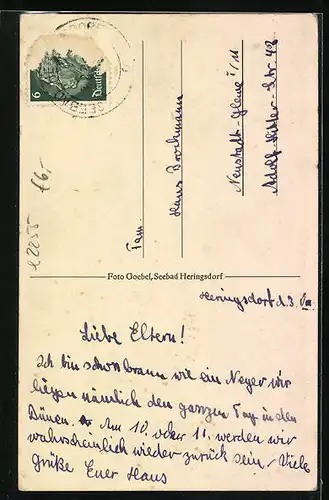 6
Deutsches
Fam.
Hans Brockmann
Neustadt-Glewe i/M
Adolf-Hitler-Str. 48
£6,-
Foto Goebel, Seebad Heringsdorf
Heringsdorf d. 3.
Liebe Eltern!
Ich bin schon braun wie ein Neger wir
liegen nämlich den ganzen Tag in den
Dünen. Am 10. oder 11. werden wir
wahrscheinlich wieder zurück sein. Viele
Grüße Euer Hans